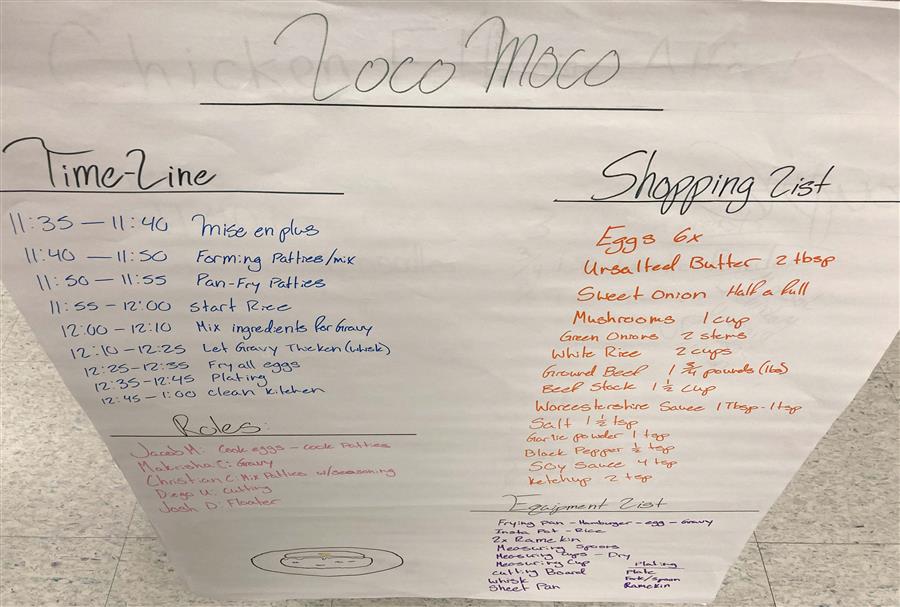 Loco Moco
Time-Line
11:35 – 11:40 Mise en plus
11:40 – 11:50 Forming Patties/mix
11:50 – 11:55 Pan-Fry Patties
11:55 – 12:00 Start Rice
12:00 – 12:10 Mix ingredients for Gravy
12:10 – 12:25 Let Gravy Thicken (whisk)
12:25 – 12:35 Fry all eggs
12:35 – 12:45 Plating
12:45 – 1:00 clean kitchen
Roles:
Jacob M: Cook eggs – cook Patties
Makrisha C: Gravy
Christian C: Mix Patties w/seasoning
Diego U: Cutting
Josh D: Floater
Shopping List
Eggs 6x
Unsalted Butter 2 tbsp
Sweet Onion Half a full
Mushrooms 1 cup
Green Onions 2 stems
White Rice 2 cups
Ground Beef 1 3/4 pounds (lbs)
Beef Stock 1 1/2 cup
Worcestershire Sauce 1 Tbsp - 1 tsp
Salt 1 1/2 tsp
Garlic powder 1 tsp
Black Pepper 1/2 tsp
Soy Sauce 4 tsp
Ketchup 2 tsp
Equipment List
Frying pan – Hamburger – egg – Gravy
Insta Pot – Rice
2x Ramekin
Measuring Spoons
Measuring Cups – Dry
Measuring Cup
Cutting Board
Whisk
Sheet Pan
Plating
Plate
Fork/spoon
Ramekin